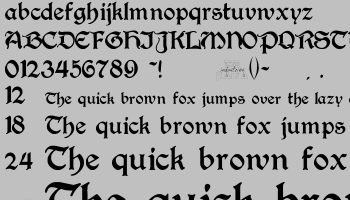 abcdefghijklmnopqrstuvwxyz
ABCDEFGHIJKLMNOPQRST
0123456789 ~! ()~ , .
12 The quick brown fox jumps over the lazy
18 The quick brown fox jumps
24 The quick brown fox
The quick bro